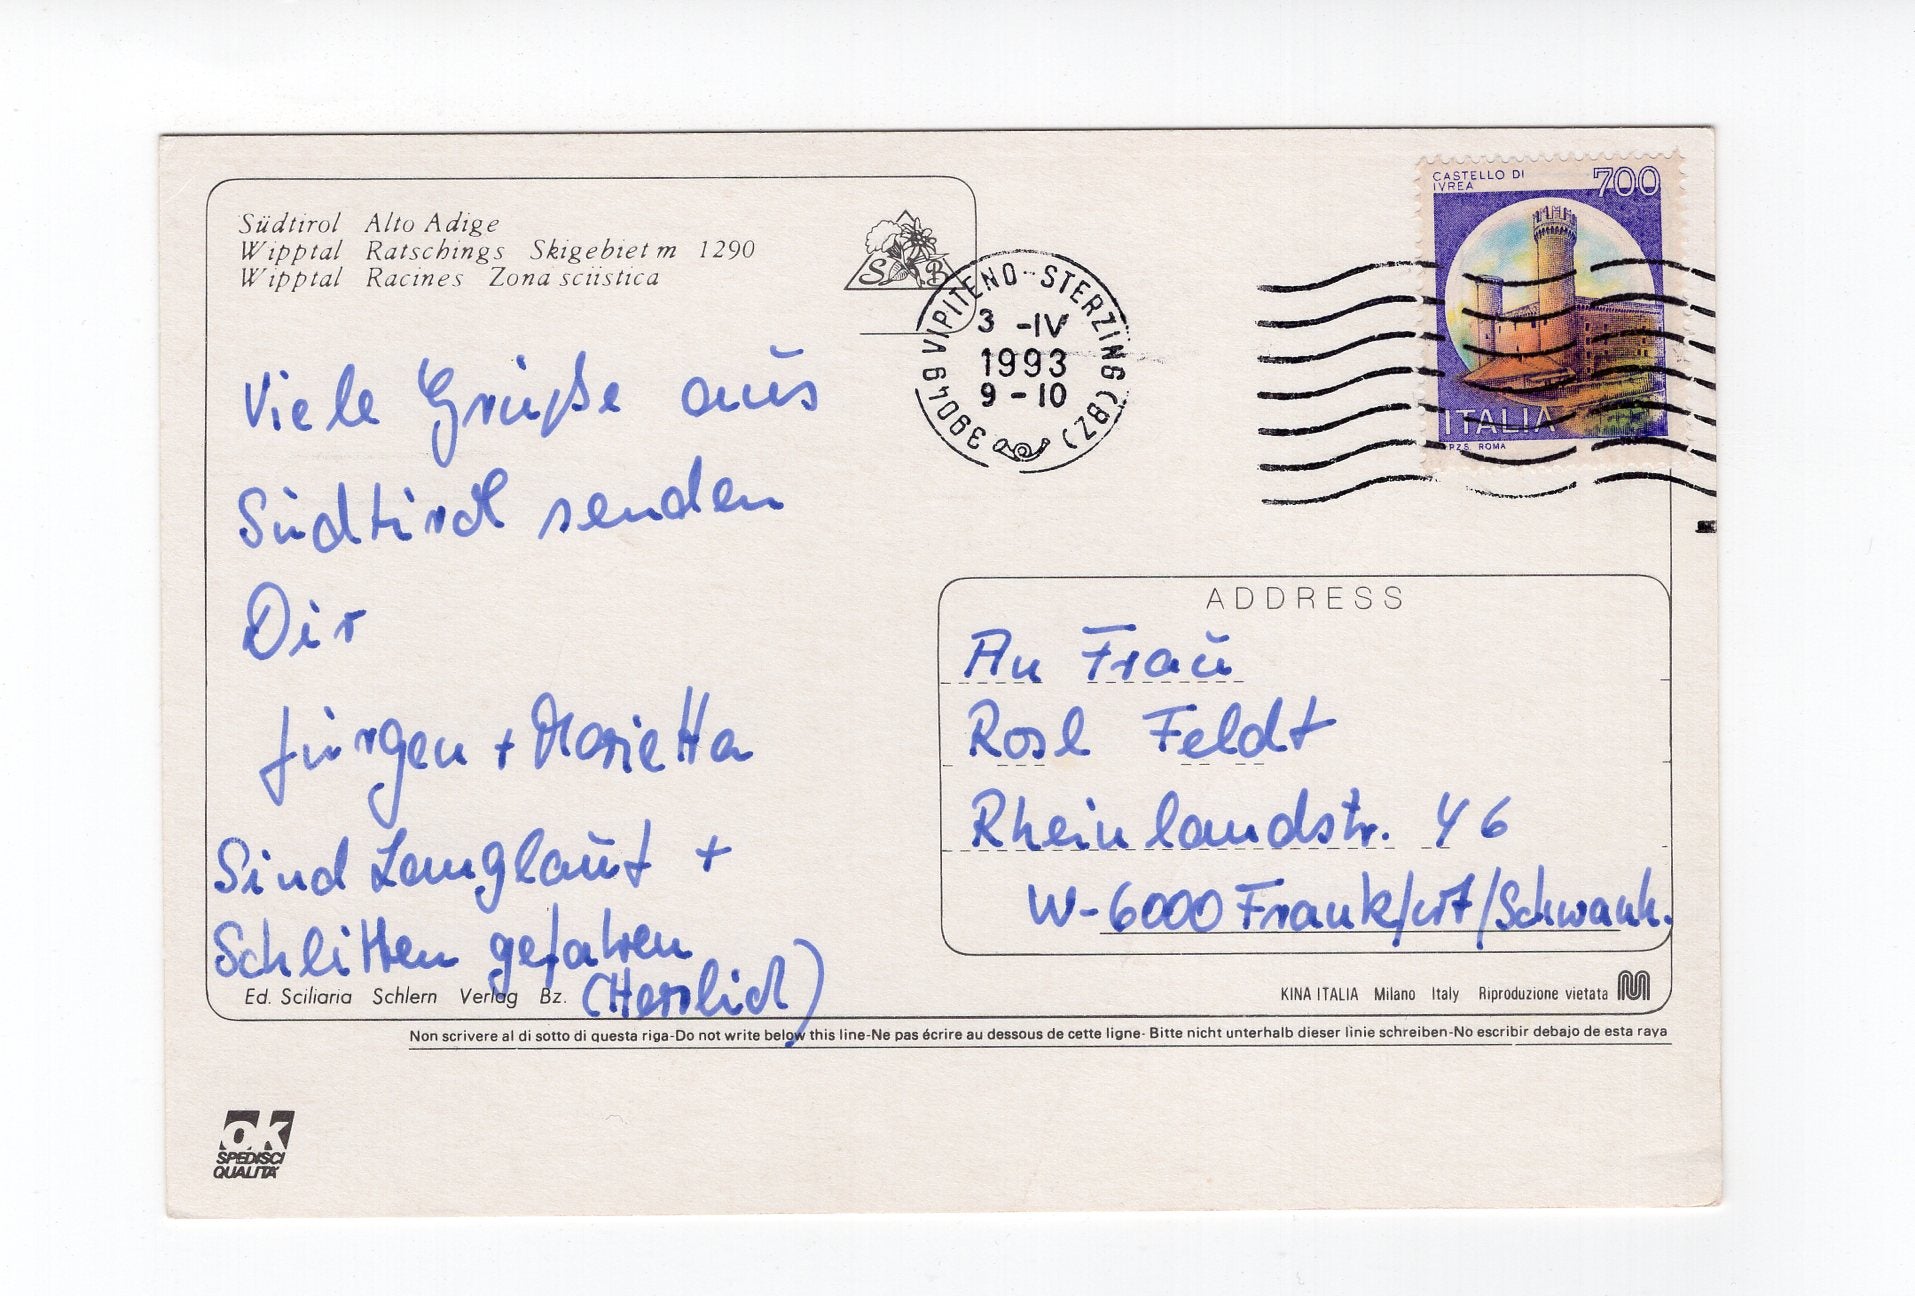 Südtirol Alto Adige
Wipptal Ratschings Skigebiet m 1290
Wipptal Racines Zona sciistica
S B
39049 VIPITENO-STERZING (BZ)
3 -IV
1993
9-10
CASTELLO DI
IVREA
700
ITALIA
I.P.Z.S. ROMA
Viele Grüße aus
Südtirol senden
Dir
Jürgen + Marietta
Sind Langlauf +
Schlitten gefahren
(Herrlich)
ADDRESS
An Frau
Rosl Feldt
Rheinlandstr. 46
W-6000 Frankfurt/Schwanh.
Ed. Sciliaria Schlern Verlag Bz.
KINA ITALIA Milano Italy Riproduzione vietata
Non scrivere al di sotto di questa riga-Do not write below this line-Ne pas écrire au dessous de cette ligne- Bitte nicht unterhalb dieser linie schreiben-No escribir debajo de esta raya
ok
SPEDISCI
QUALITA'